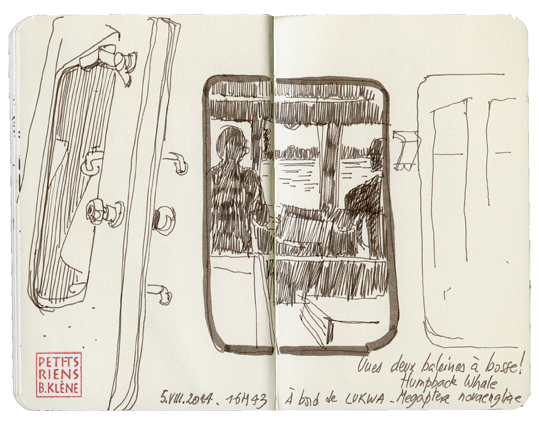 PETITS
RIENS
B.KLÈNE
Vues deux baleines à bosse!
Humpback Whale
5.VIII.2014 . 16H43 À bord de LUKWA - Megaptera novaengliae